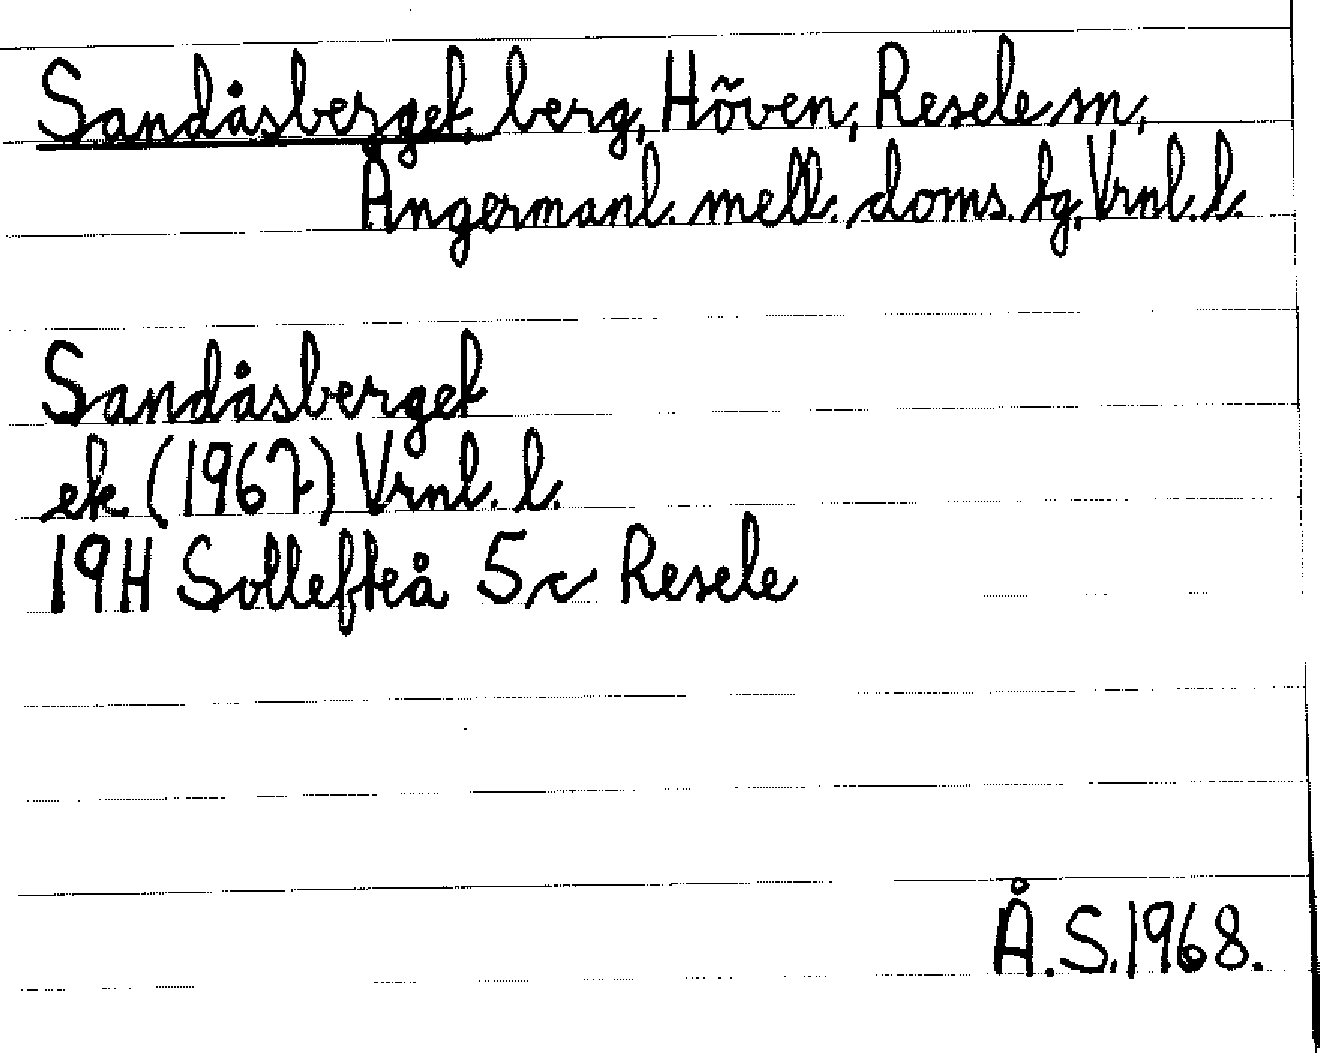 Sandåsberget, berg, Höven, Resele sn,
Ångermanl. mell. doms. tg, Vrnl. l.
Sandåsberget
ek. (1967) Vrnl. l.
19H Sollefteå 5c Resele
Å.S. 1968.